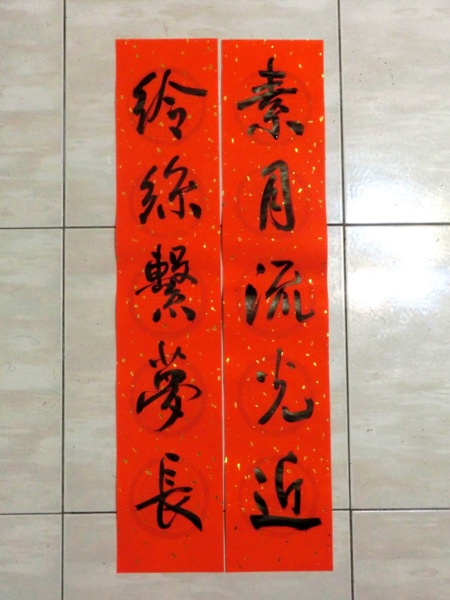 素月流光近
給絲繫夢長